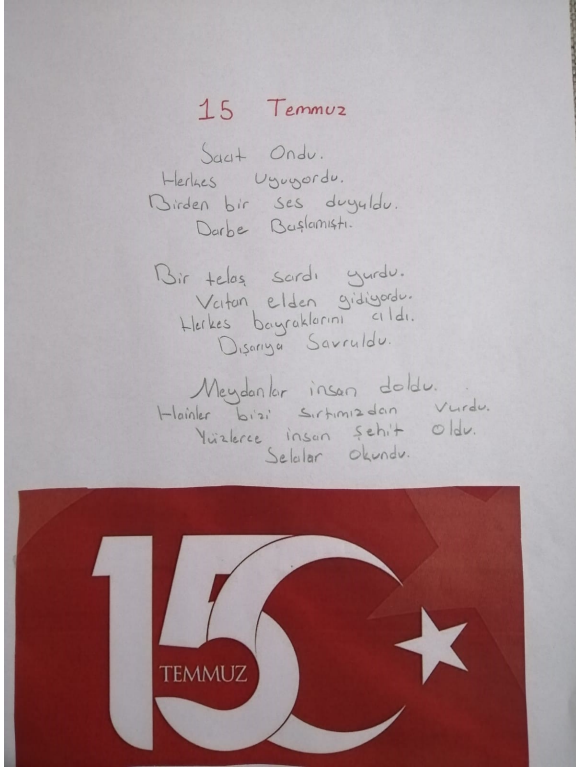 15 Temmuz
Saat Ondu.
Herkes Uyuyordu.
Birden bir ses duyuldu.
Darbe Başlamıştı.
Bir telaş sardı yurdu.
Vatan elden gidiyordu.
Herkes bayraklarını aldı.
Dışarıya Savruldu.
Meydanlar insan doldu.
Hainler bizi sırtımızdan vurdu.
Yüzlerce insan şehit oldu.
Selalar Okundu.
15
TEMMUZ